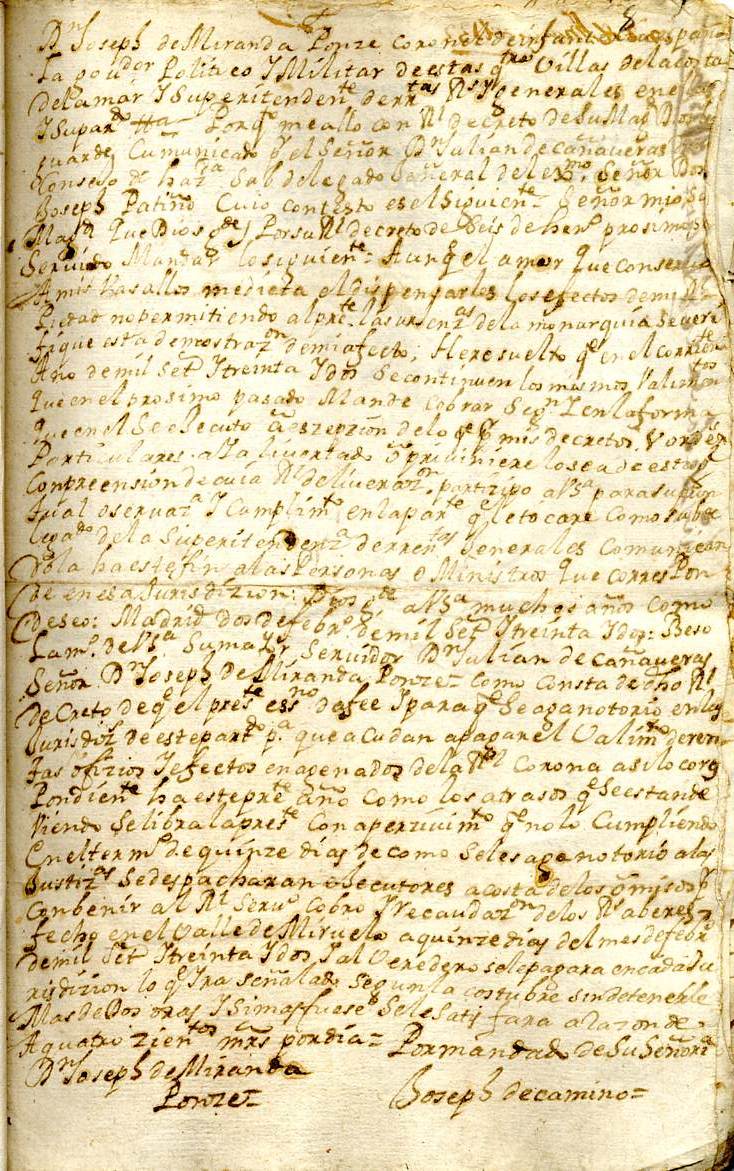 Dn Joseph de Miranda Ponze coronel de infant
ta gov.dor Politico I Militar de estas qtro Villas de la costa
de la mar I Superitendente de rrtas Rs y generales en ellas
I su par.do Por qe me allo con Rl decreto de su Mag.d Dios
guarde Cumunicado por el Señor Dn Julian de cañaveras del
Consejo de haz.a Subdelegado General del exmo Señor Don
Joseph Patiño Cuio contesto es el siguiente = Señor mio
Mag.d Que Dios gde Por su Rl decreto de seis de hero prosimo
Servido Mandar lo siguiente = Aunqe el amor que conservo
A mis Vasallos me dicta el dispensarlos los efectos de mi Rl
Piedad no permitiendo al preste las urgenzas de la monarquia
fique esta demostrazon de mi afecto, He resuelto qe en el corriente
Año de mil Setz I treinta I dos Se continuen los mismos Valimtos
Que en el prosimo pasado Mande cobrar Segn I en la forma
Que en el Se executo a eszepzion de lo qe por mis decretos V ordens
Particulares a la livertad o priviniere lo sea de estos
Conpreension de cuia Rl deliverazon partizipo a VSa para su
tual oservaza I Cumplimto en la parte qe le tocare como subde
legado de la Superitendenza de rrentas Generales comunican
dola ha este fin a las Personas o Ministros Que corresPon
de en esa Jurisdizion: Dios gde a VSa muchos años como
deseo: Madrid dos de febro de mil Setz I treinta I dos: Beso
La mo de VSa Su maior Servidor Dn Julian de cañaveras
Señor Dn Joseph de Miranda Ponze = como consta de dho Rl
deCreto de qe el preste essno da fee I para qe se aga notorio en las
Jurisdizs de este partdo pa que acudan a pagar el Valimto de ren
tas ofizios I efectos enagenados de la Rl Corona asi lo cores
Pondiente ha este preste año como los atrasos qe se estan de
Viendo Se libra la preste con aperzivimto qe no lo Cumpliendo
En el termo de quinze dias de como se les aga notorio a las
Justizas Se despacharan egecutores a costa de los omisos pr
Conbenir al Rl Servo cobro I recaudazon de los Rs aberes
fecho en el Valle de Miruelo a quinze dias del mes de febro
de mil Setz I treinta I dos I al Veredero se le pagara en cada Ju
risdizion lo qe Ira señalado segun la costubre sin detenerle
Mas de Dos oras I Si mas fuese Se le satisfara a la zon de
A quatrozientos mrs por dia = Por mandado de Su Señoria
Dn Joseph de Miranda
Ponze =
Joseph de camino =